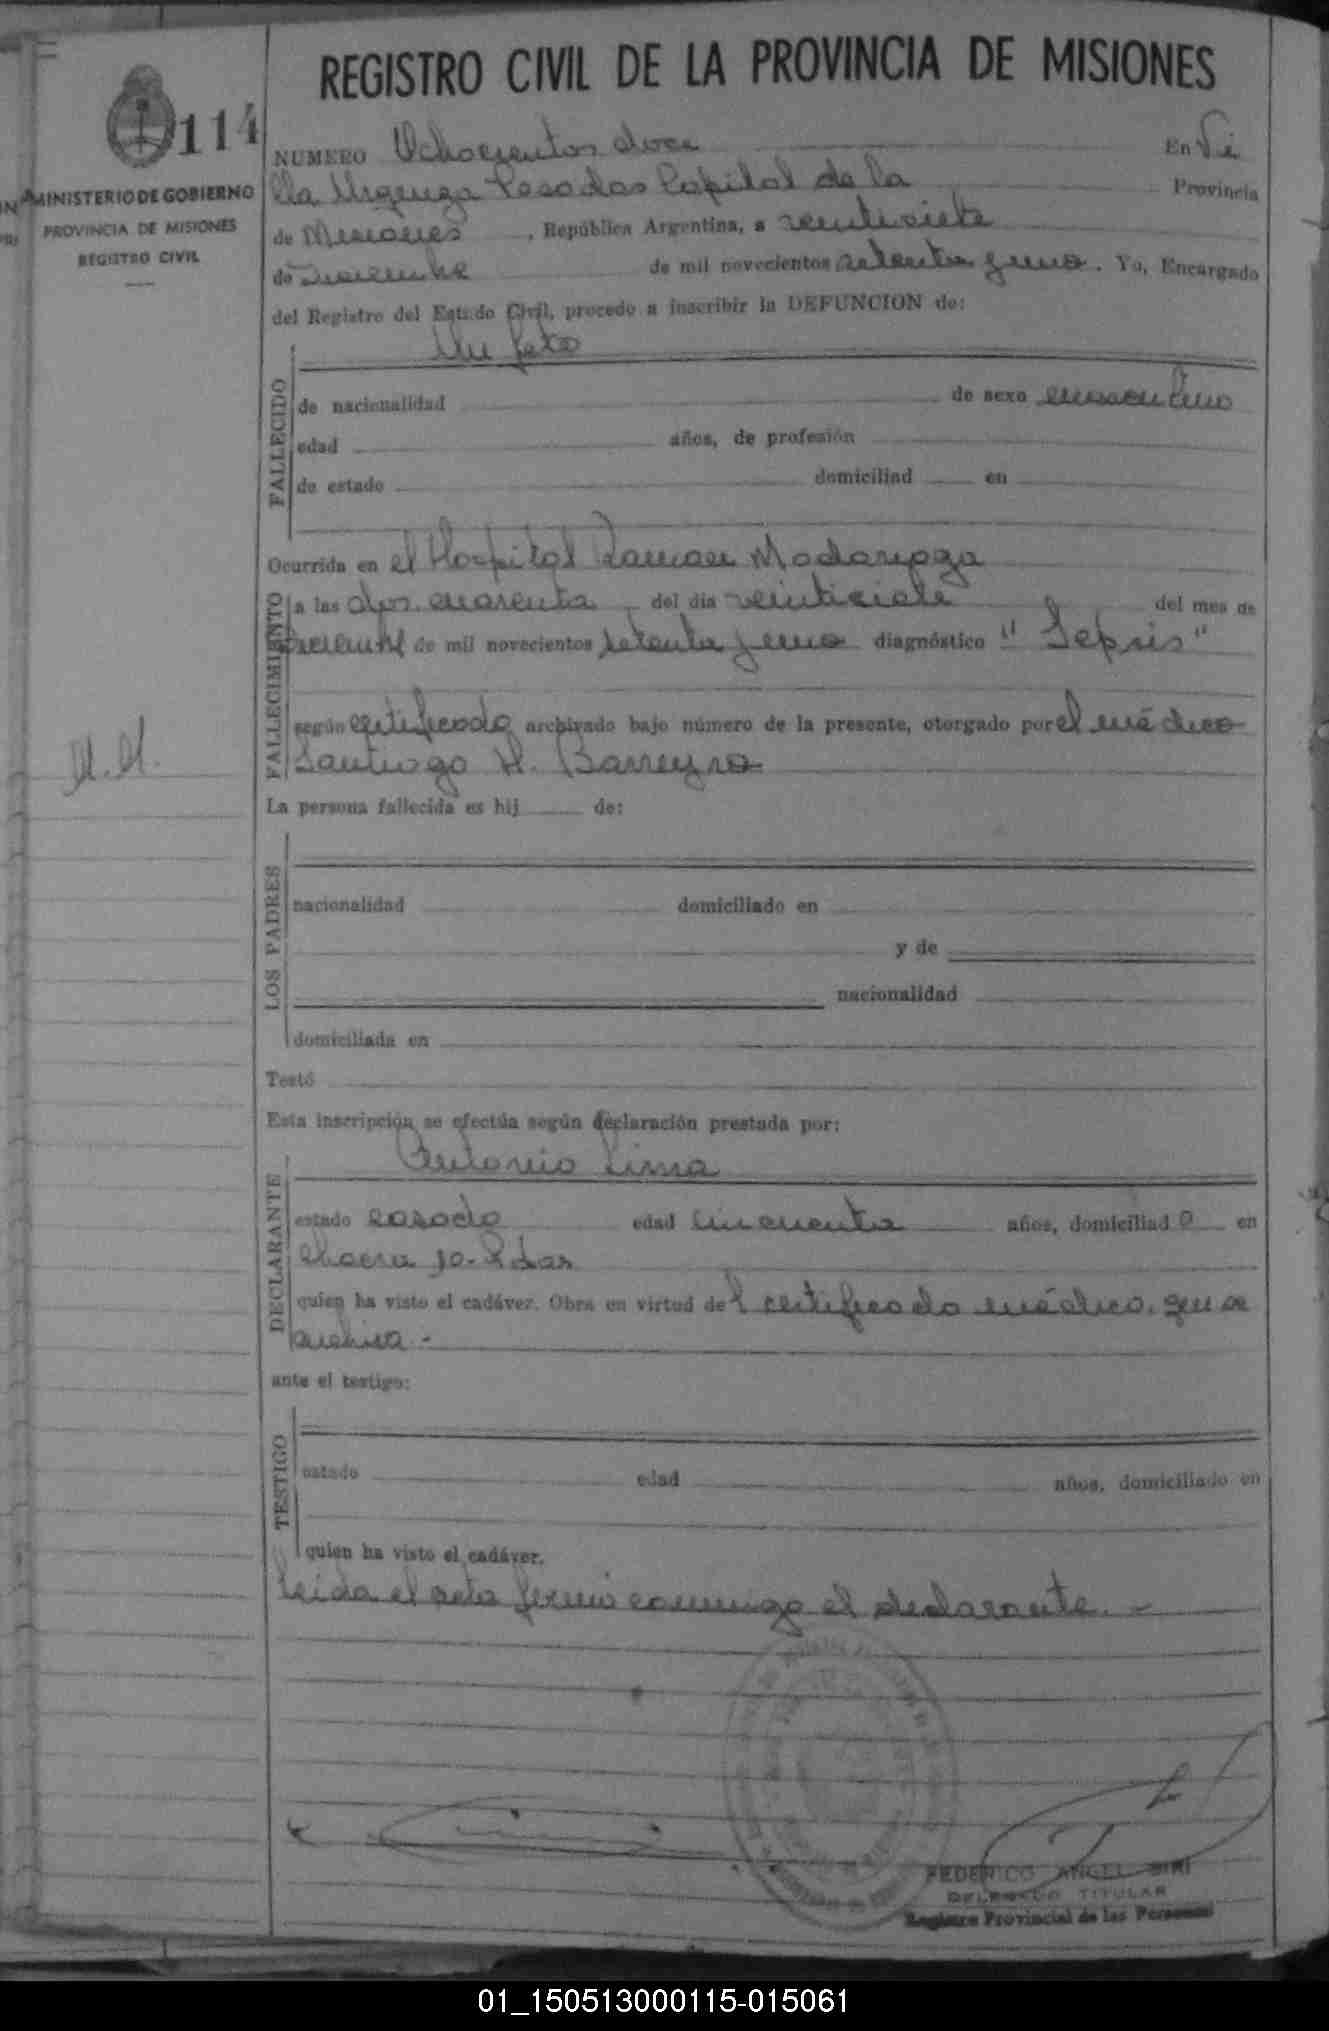 REGISTRO CIVIL DE LA PROVINCIA DE MISIONES
114
MINISTERIO DE GOBIERNO
PROVINCIA DE MISIONES
REGISTRO CIVIL
NUMERO Ochocientos doce En Vi
lla Urquiza Posadas Capital de la Provincia
de Misiones, República Argentina, a veintisiete
de Diciembre de mil novecientos setenta y uno. Yo, Encargado
del Registro del Estado Civil, procedo a inscribir la DEFUNCION de:
Un feto
FALLECIDO
de nacionalidad de sexo masculino
edad años, de profesión
de estado domiciliad en
Ocurrida en el Hospital Ramon Madariaga
FALLECIMIENTO
a las dos cuarenta del día veintisiete del mes de
Diciembre de mil novecientos setenta y uno diagnóstico "Sepsis"
según certificado archivado bajo número de la presente, otorgado por el médico
Santiago H. Barreyro
La persona fallecida es hij de:
LOS PADRES
nacionalidad domiciliado en
y de
nacionalidad
domiciliada en
Testó
Esta inscripción se efectúa según declaración prestada por:
Antonio Lima
DECLARANTE
estado casado edad cincuenta años, domiciliad o en
chacra
quien ha visto el cadáver. Obra en virtud del certificado médico, que se
archiva.-
ante el testigo:
TESTIGO
estado edad años, domiciliado en
quien ha visto el cadáver.
leida el acta firmó conmigo el declarante. -
FEDERICO ANGEL SIRI
DELEGADO TITULAR
Registro Provincial de las Personas
01_150513000115-015061